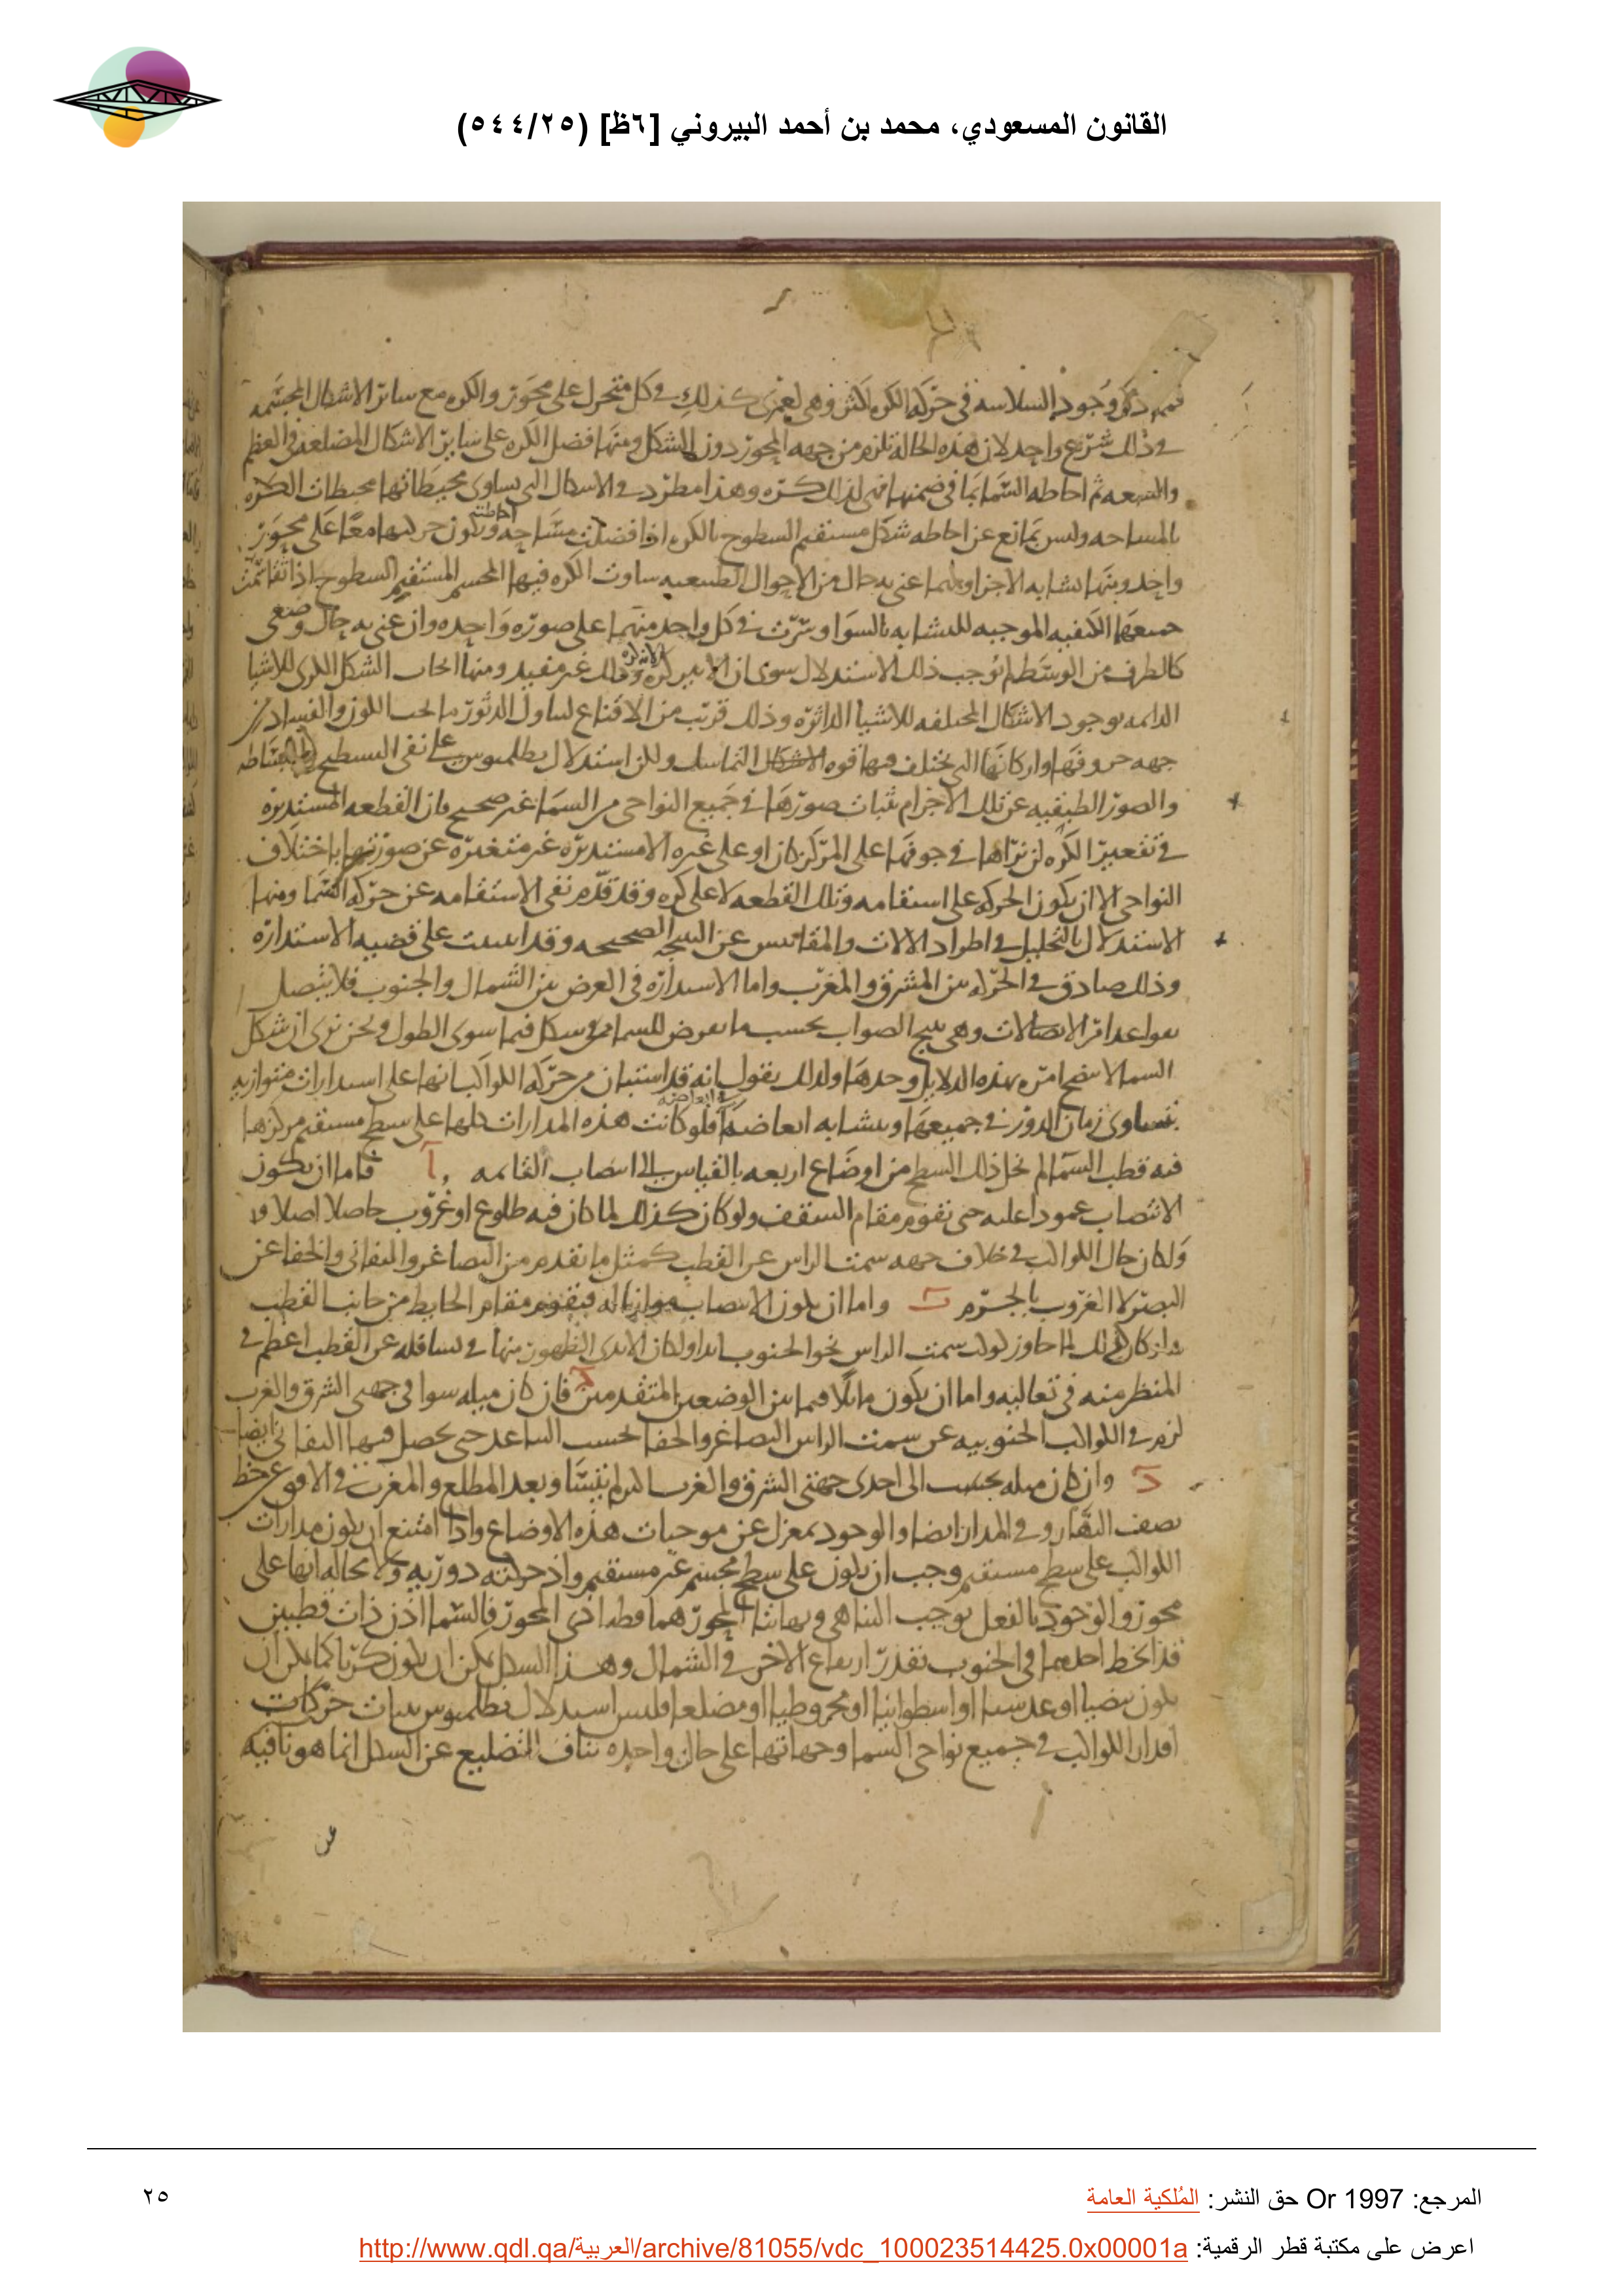 القانون المسعودي، محمد بن أحمد البيروني [٦ظ] (٥٤٤/٢٥)
وجود السلاسه في حركه الكره اكثر وهي لعمري كذلك في كل متحرك على محور والكره مع سائر الاشكال المجسمه
في ذلك شرع واحد لان هذه الحالة تلزم من جهه المحور دون الشكل ومنها فضل الكره على سائر الاشكال المضلعه في العظم
والسعه ثم احاطه السما بما في ضمنها فهي لذلك كره وهذا مطرد في الاشكال التي يساوى محيطاتها محيطات الكره
بالمساحه وليس بمانع عن احاطه شكل مستقيم السطوح بالكره اذا فضلت مساحه ويكون حركتهما معا على محور
واحد ومنها تشابه الاجزا ومهما عنى به حال من الاحوال الطبيعيه ساوت الكره فيها المجسم المستقيم السطوح اذا
جميعها الكيفيه الموجبه للتشابه بالسوا وسرت في كل واحد منهما على صوره واحده وان عنى به حال وضعى
كالطرف من الوسط لم يوجب ذلك الاستدلال سوى ان الاثير كره وذلك غير مفيد ومنها ايجاب الشكل الكرى للاشيا
الدائمه بوجود الاشكال المختلفه للاشيا الداثره وذلك قريب من الاقناع
جهه حروفها واركانها التي تختلف فيها قوه التماسك ولكن استدلال بطلميوس على نفى التسطيح
والصور الطبقيه عن تلك الاجرام بثبات صورها في جميع النواحى من السما غير صحيح فان القطعه المستديره
في تقعير الكره لن نراها في جوفها على المركز كان او على غيره الا مستديره غير متغيره عن صورتها باختلاف
النواحى الا ان يكون الحركه على استقامه وتلك القطعه لا على كره وقد قدم نفى الاستقامه عن حركه السما ومنها
الاستدلال بالتحليل في اطراد الالات والمقاييس عن النتيجه الصحيحه وقد اسست على قضيه الاستداره
وذلك صادق في الحركه بين المشرق والمغرب واما الاستداره في العرض بين الشمال والجنوب فلا يتصل
الاتصالات وهي نتيج الصواب بحسب ما يعرض للسما من شكل فيما سوى الطول ونحن نرى ان شكل
السما لا يتضح امره بهذه الدلايل وحدها ولذلك يقول انه قد استبان من حركه الكواكب انها على استدارات متوازيه
يتساوى زمان الدور في جميعها ويتشابه ابعاضها فلو كانت هذه المدارات كلها على سطح مستقيم مركزها
فيه قطب السما لم يخل ذلك السطح من اوضاع اربعه بالقياس الى انتصاب القامه آ فاما ان يكون
الانتصاب عمودا عليه حتى تقوم مقام السقف ولو كان كذلك لما كان فيه طلوع او غروب حاصلا اصلا
ولكان حال الكواكب في خلاف جهه سمت الراس عن القطب كمثل ما تقدم من التصاغر والتفانى والخفا عن
البصر لا الغروب بالجرم ب واما ان يكون الانتصاب موازيا له فيقوم مقام الحايط من جانب القطب
ولو كان كذلك لما جاوز كوكب سمت الراس نحو الجنوب ابدا ولكان الابدى الظهور منها في تسافله عن القطب اعظم في
المنظر منه في تعاليه واما ان يكون مائلا فيما بين الوضعين المتقدمين ج فان كان ميله سوا في جهتى الشرق والغرب
لزم في الكواكب الجنوبيه عن سمت الراس التصاغر والخفا بحسب التباعد حتى يحصل فيها التفانى ايضا
د وان كان ميله بحسب الى احدى جهتى الشرق والغرب لم يتساو بعد المطلع والمغرب في الافق عن خط
نصف النهار وفي المدار ايضا والوجود بمعزل عن موجبات هذه الاوضاع واذا امتنع ان يكون مدارات
الكواكب على سطح مستقيم وجب ان يكون على سطح مجسم غير مستقيم واذ حركته دوريه ولا محاله انها على
محور والوجود بالفعل يوجب التناهى ونهايتا المحور هما قطبا ذى المحور فالسما اذن ذات قطبين
قد انحط احدهما في الجنوب بقدر ارتفاع الاخر في الشمال وهذا الشكل يمكن ان يكون كريا كما يمكن ان
يكون بيضيا او عدسيا او اسطوانيا او مخروطيا او مضلعا فليس استدلال بطلميوس بثبات حركات
اقدار الكواكب في جميع نواحى السما وجهاتها على حال واحده بناف التضليع عن الشكل انما هو نافيه
عن
المرجع: Or 1997 حق النشر: المُلكية العامة
٢٥
اعرض على مكتبة قطر الرقمية: http://www.qdl.qa/العربية/archive/81055/vdc_100023514425.0x00001a